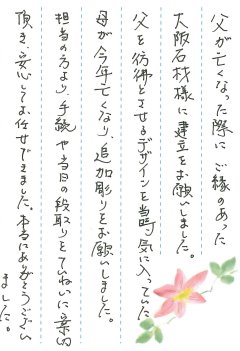 父が亡くなった際に ご縁のあった
大阪石材様に建立をお願いしました。
父を彷彿とさせるデザインを当時、気に入っていた
母が今年亡くなり、追加彫りをお願いしました。
担当の方より、手続や当日の段取りをていねいに案内
頂き、安心してお任せできました。本当にありがとうござい
ました。